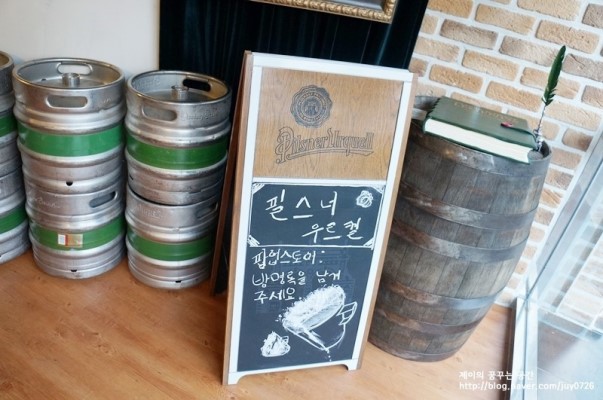 Pilsner Urquell
필스너
우르켈
팝업스토어:
방명록을 남겨
주세요
제이의 꿈꾸는 공간
http://blog.naver.com/juy0726